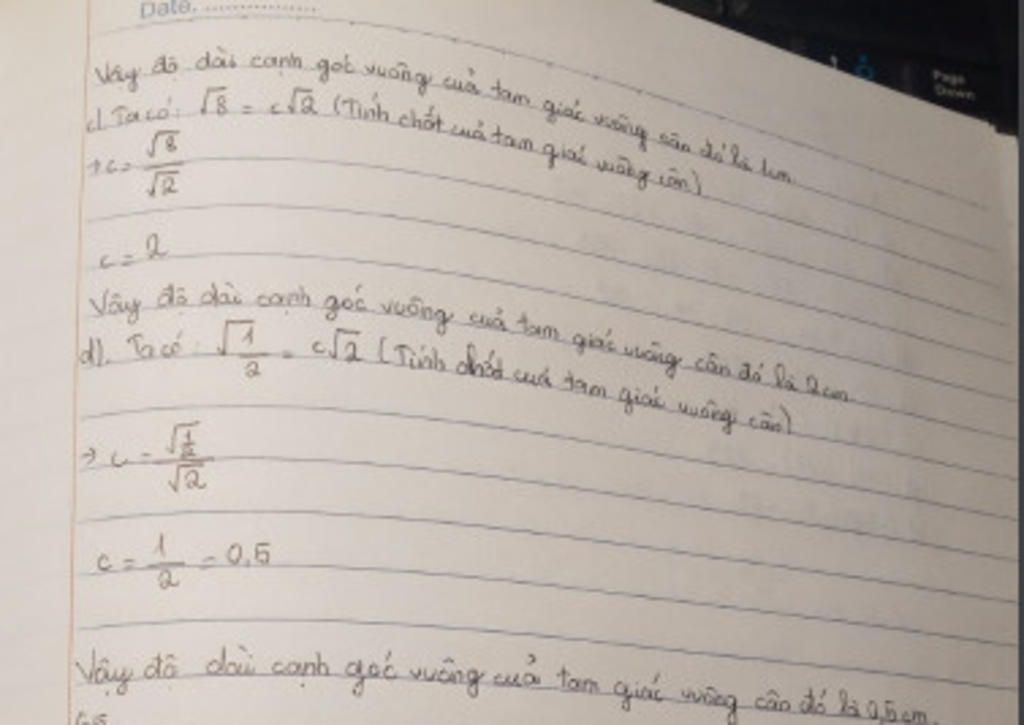 Date. ..............
Page
Down
Vậy độ dài cạnh góc vuông của tam giác vuông cân đó là 1cm
c) Ta có: √8 = c√2 (Tính chất của tam giác vuông cân)
→ c = √8/√2
c = 2
Vậy độ dài cạnh góc vuông của tam giác vuông cân đó là 2cm
d). Ta có: √1/2 = c√2 (Tính chất của tam giác vuông cân)
→ c = √1/2/√2
c = 1/2 = 0,5
Vậy độ dài cạnh góc vuông của tam giác vuông cân đó là 0,5cm